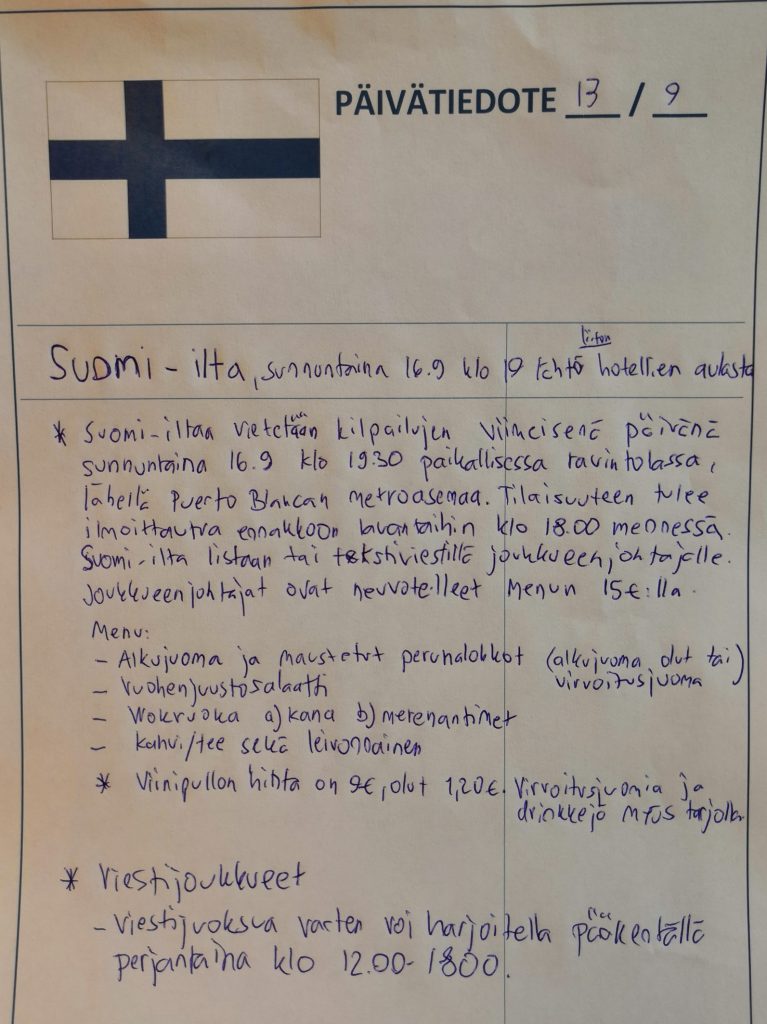 PÄIVÄTIEDOTE 13 / 9
liiton
Suomi-ilta, sunnuntaina 16.9 klo 19 lähtö hotellien aulasta
* Suomi-iltaa vietetään kilpailujen viimeisenä päivänä
sunnuntaina 16.9 klo 19.30 paikallisessa ravintolassa,
lähellä Puerto Blancan metroasemaa. Tilaisuuteen tulee
ilmoittautua ennakkoon lauantaihin klo 18.00 mennessä.
Suomi-ilta listaan tai tekstiviestillä joukkueenjohtajalle.
Joukkueenjohtajat ovat neuvotelleet Menun 15€:lla.
Menu:
- Alkujuoma ja maustetut perunalohkot (alkujuoma olut tai
virvoitusjuoma)
- Vuohenjuustosalaatti
- Wokruoka a) kana b) merenantimet
- kahvi/tee sekä leivonnainen
* Viinipullon hinta on 9€, olut 1,20€. Virvoitusjuomia ja
drinkkejä MYÖS tarjolla
* Viestijoukkueet
- Viestijuoksua varten voi harjoitella pääkentällä
perjantaina klo 12.00-1800.